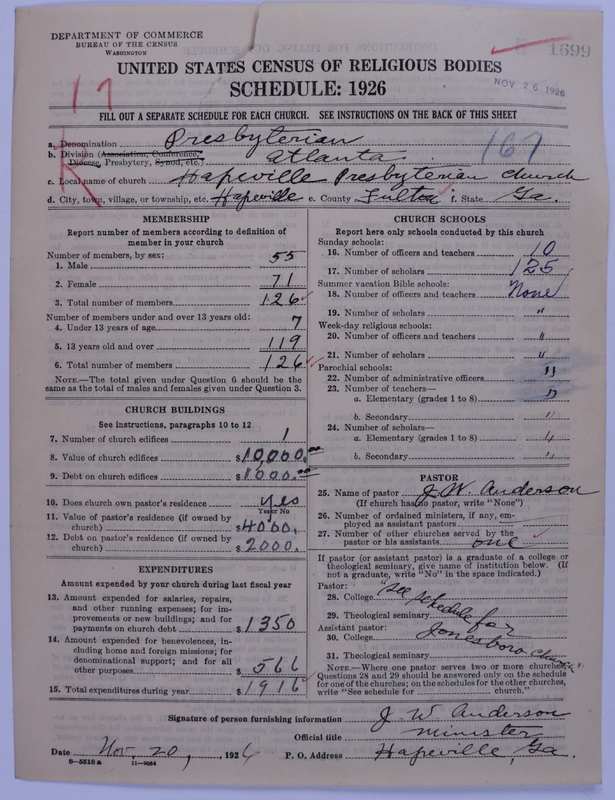 DEPARTMENT OF COMMERCE
BUREAU OF THE CENSUS
WASHINGTON
1699
UNITED STATES CENSUS OF RELIGIOUS BODIES
SCHEDULE: 1926
NOV 26 1926
17
FILL OUT A SEPARATE SCHEDULE FOR EACH CHURCH. SEE INSTRUCTIONS ON THE BACK OF THIS SHEET
a. Denomination Presbyterian
b. Division (Association, Conference, Diocese, Presbytery, Synod, etc.) Atlanta 167
c. Local name of church Hapeville Presbyterian Church
d. City, town, village, or township, etc. Hapeville e. County Fulton f. State Ga.
MEMBERSHIP
Report number of members according to definition of
member in your church
Number of members, by sex:
1. Male 55
2. Female 71
3. Total number of members 126
Number of members under and over 13 years old:
4. Under 13 years of age 7
5. 13 years old and over 119
6. Total number of members 126
NOTE.—The total given under Question 6 should be the
same as the total of males and females given under Question 3.
CHURCH BUILDINGS
See instructions, paragraphs 10 to 12
7. Number of church edifices 1
8. Value of church edifices $10,000.00
9. Debt on church edifices $1000.00
10. Does church own pastor's residence yes
Yes or No
11. Value of pastor's residence (if owned by
church) $4000.
12. Debt on pastor's residence (if owned by
church) $2000.
EXPENDITURES
Amount expended by your church during last fiscal year
13. Amount expended for salaries, repairs,
and other running expenses; for im-
provements or new buildings; and for
payments on church debt $1350
14. Amount expended for benevolences, in-
cluding home and foreign missions; for
denominational support; and for all
other purposes $566
15. Total expenditures during year $1916
CHURCH SCHOOLS
Report here only schools conducted by this church
Sunday schools:
16. Number of officers and teachers 10
17. Number of scholars 125
Summer vacation Bible schools:
18. Number of officers and teachers None
19. Number of scholars "
Week-day religious schools:
20. Number of officers and teachers "
21. Number of scholars "
Parochial schools:
22. Number of administrative officers "
23. Number of teachers—
a. Elementary (grades 1 to 8) "
b. Secondary "
24. Number of scholars—
a. Elementary (grades 1 to 8) "
b. Secondary "
PASTOR
25. Name of pastor J. W. Anderson
(If church has no pastor, write "None")
26. Number of ordained ministers, if any, em-
ployed as assistant pastors
27. Number of other churches served by the
pastor or his assistants one
If pastor (or assistant pastor) is a graduate of a college or
theological seminary, give name of institution below. (If
not a graduate, write "No" in the space indicated.)
Pastor:
28. College "See schedule for
29. Theological seminary Jonesboro church"
Assistant pastor:
30. College
31. Theological seminary
NOTE.—Where one pastor serves two or more churches,
Questions 28 and 29 should be answered only on the schedule
for one of the churches; on the schedules for the other churches,
write "See schedule for ________ church."
Signature of person furnishing information J. W. Anderson
Official title minister
Date Nov. 20, 1926 P. O. Address Hapeville, Ga.
8—5518 a 11—9034